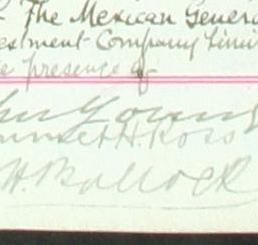 The Mexican Genera
estment Company Limi
e presence of
Young
H. Ross
H. Bullock